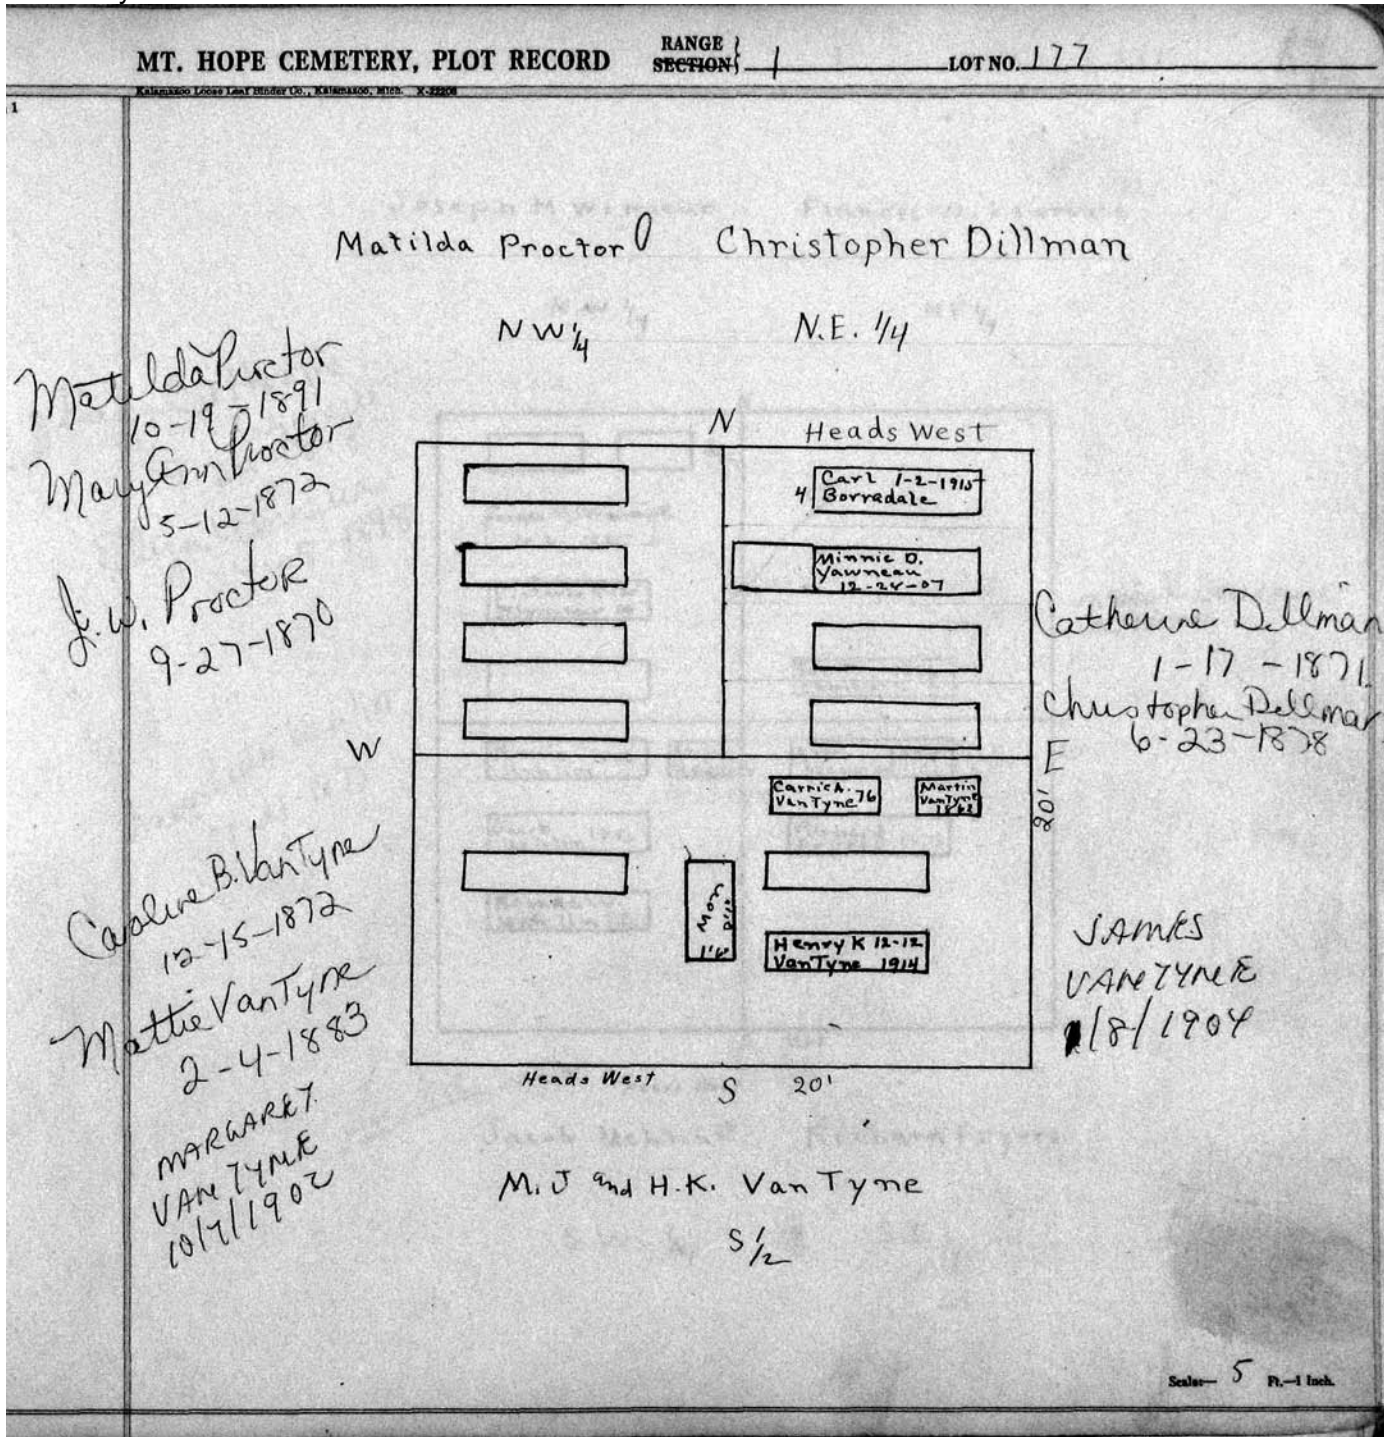 MT. HOPE CEMETERY, PLOT RECORD
RANGE
SECTION 1
LOT NO. 177
Kalamazoo Loose Leaf Binder Co., Kalamazoo, Mich. X-22208
1
Matilda Proctor
Christopher Dillman
NW 1/4
N.E. 1/4
Matilda Proctor
10-19-1891
Mary Ann Proctor
5-12-1872
J. W. Proctor
9-27-1870
N
Heads West
4
Carl 1-2-1915
Borradale
Minnie D.
Yawneau
12-24-07
Catherine Dillman
1-17-1871
Christopher Dillman
6-23-1878
W
E
20'
Carrie A.
VanTyne 76
Martin
VanTyne
1862
Mon
1'6
Henry K 12-12
VanTyne 1914
Caroline B. VanTyne
12-15-1872
Mattie VanTyne
2-4-1883
MARGARET
VANTYNE
10/7/1902
JAMES
VANTYNE
1/8/1904
Heads West
S
20'
M. J and H. K. Van Tyne
S 1/2
Scale— 5 Ft.—1 Inch.